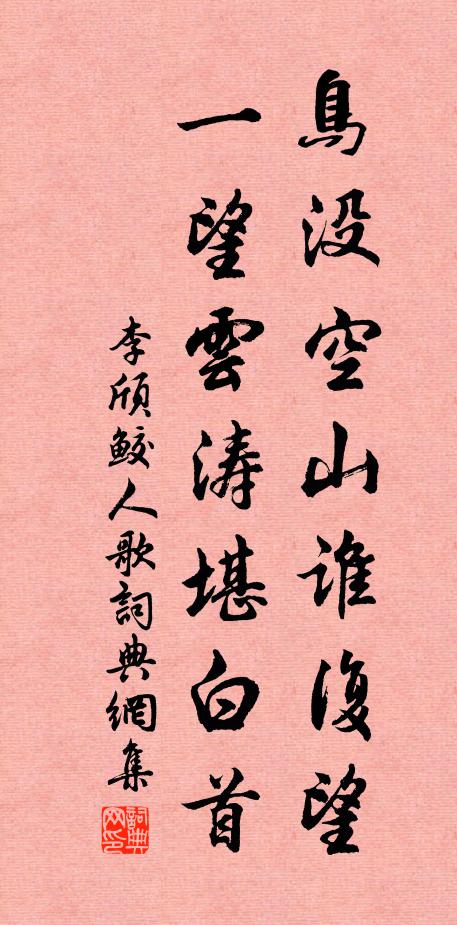 鳥没空山誰復望
一望雲濤堪白首
李頎鮫人歌詞典網集
詞典
网印